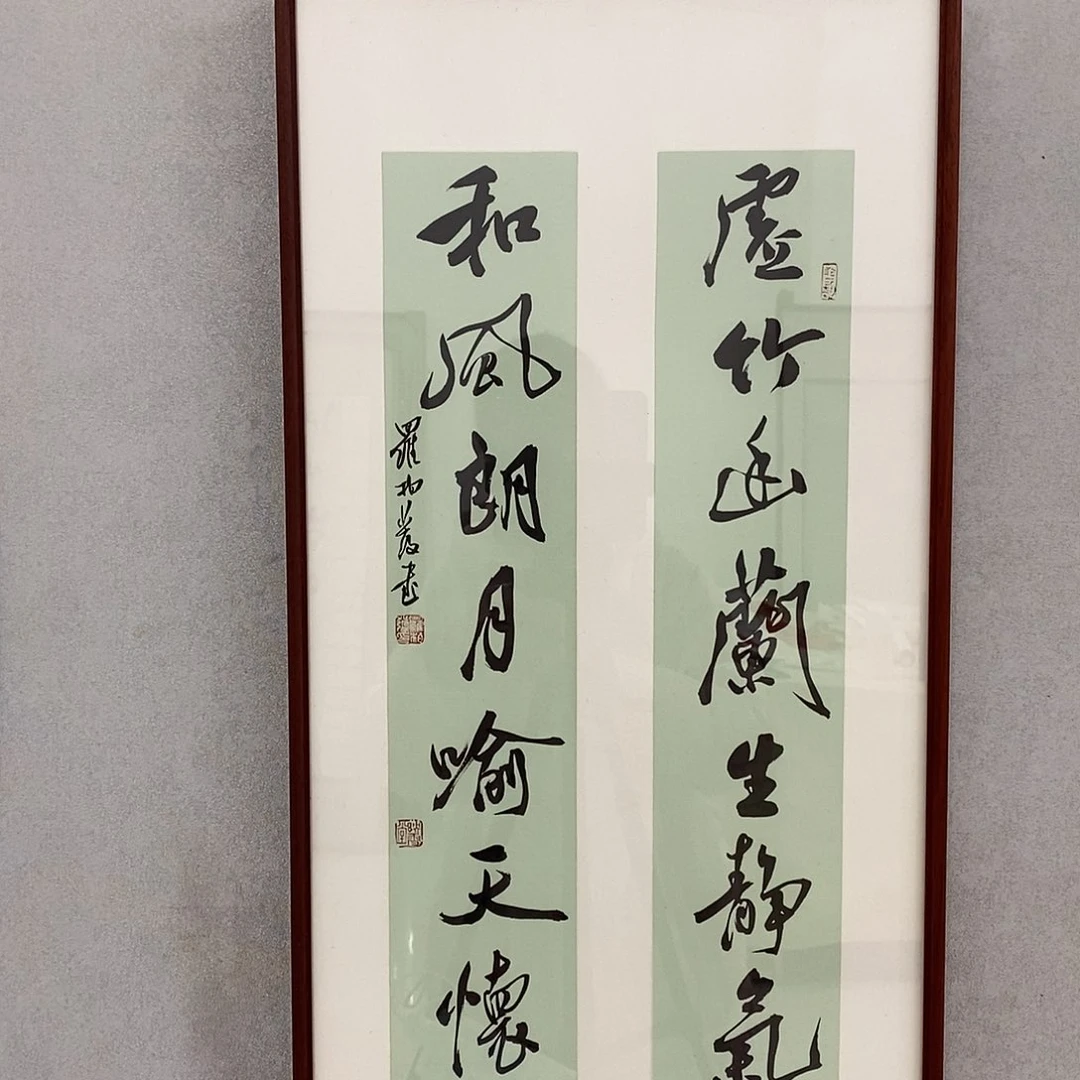 虛竹幽蘭生靜氣
和風朗月喻天懷
羅
書